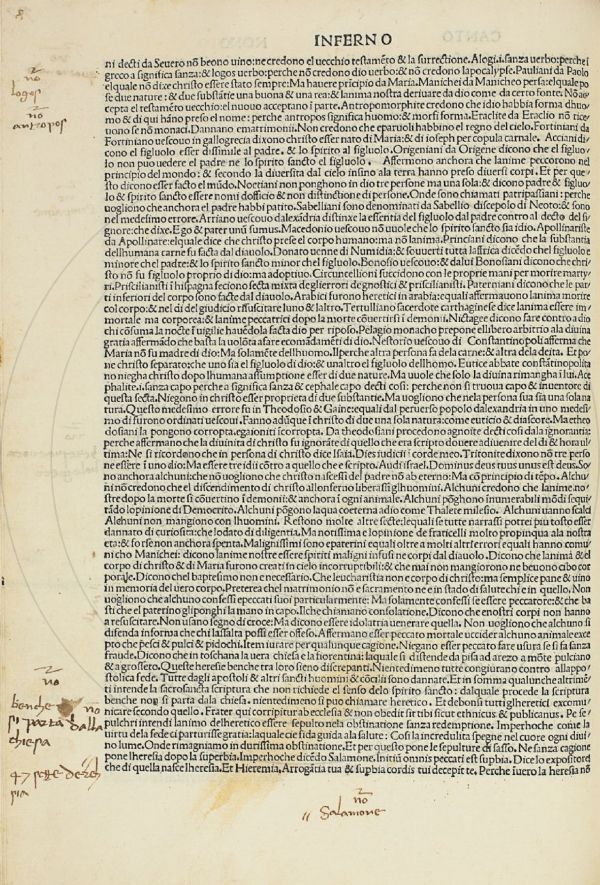 INFERNO
ni decti da Seuero nõ beono uino: ne credono el uecchio testamẽto & la surrectione. Alogi.i.sanza uerbo: perche ĩ
greco a significa sanza: & logos uerbo: perche nõ credono dio uerbo: & nõ credono lapocalypse. Pauliani da Paolo
elquale nõ dixe christo essere stato sempre: Ma hauere prĩcipio da Maria. Manichei da Manicheo persa: elquale po
se due nature: & due substãtie una buona & una rea: & lanima nostra deriuare da dio come da certo fonte. Nõ acc
cepta el testamẽto uecchio: el nuouo acceptano ĩ parte. Antropomorphite credono che idio habbia forma dhuo
mo & di qui hãno preso el nome: perche antropos significa huomo: & morfi forma. Eraclite da Eraclio nõ rice
uono se nõ monaci. Dannano ematrimonii. Non credono che eparuoli habbino el regno del cielo. Fortiniani da
Fortiniano uescouo in gallogrecia dixono christo esser nato di Maria: & di ioseph per copula carnale. Acciani di
cono el figluolo esser dissimile al padre. & lo spirito al figluolo. Origeniani da Origene dicono che el figluo-
lo non puo uedere el padre ne lo spirito sancto el figluolo. Affermono anchora che lanime peccorono nel
principio del mondo: & secondo la diuersita dal cielo insino ala terra hanno preso diuersi corpi. Et per que
sto dicono esser facto el mũdo. Noetiani non ponghono in dio tre persone ma una sola: & dicono padre & figluo
lo & spirito sancto essere nomi dofficio & non distinctione di persone. Onde sono chiamati patripassiani: perche
uogliono che anchora el padre habbi patito. Sabelliani sono denominati da Sabellio discepolo di Neoto: & sono
nel medesimo errore. Arriano uescouo dalexãdria distinxe la essentia del figluolo dal padre contro al decto del si-
gnore: che dixe. Ego & pater unũ sumus. Macedonio uescouo nõ uuole che lo spirito sancto sia idio. Apollinaristi
da Apollinare: elquale dice che christo prese el corpo humano: ma nõ lanima. Princiani dicono che la substantia
dellhumana carne fu facta dal diauolo. Donato uenne di Numidia: & souuertì tutta lafrica dicẽdo chel figluolo e
minore che padre: & lo spirito sancto minor che figluolo. Bonosio uescouo: & dalui Bonosiani dicono che chri
sto nõ fu figluolo proprio di dio: ma adoptiuo. Circuncellioni succidono con le proprie mani per morire marty
ri. Priscilianisti ĩ hispagna feciono secta mixta deglierrori de gnostici & priscilianisti. Paterniani dicono che le par
ti inferiori del corpo sono facte dal diauolo. Arabici furono heretici in arabia: equali affermauono lanima morire
col corpo: & nel di del giudicio risuscitare luno & laltro. Tertulliano sacerdote carthaginese dice lanima essere im-
mortale ma corporea: & lanime peccatrici dopo la morte couertirsi ĩ demonii. Nictagee dicono fare contro a dio
chi cõsuma la nocte ĩ uigilie hauẽdola facta dio per riposo. Pelagio monacho prepone ellibero arbitrio ala diuina
gratia affermãdo che basta la uolõta afare ecomãdamẽti di dio. Nestorio uescouo di Constantinopoli afferma che
Maria nõ fu madre di dio: Ma solamẽte dellhuomo. Ilperche altra persona fa dela carne: & altra dela deita. Et po-
ne christo separato: che uno sia el figluolo di dio: & unaltro el figluolo dellhomo. Eutice abbate constãtinopolita
no niegha christo dopo lhumana assumptione esser di due nature. Ma uuole che solo la diuina rimangha ĩ lui. Ace
phalite.i.sanza capo perche a significa sanza & cephale capo decti cosi: perche non si truoua capo & inuentore di
questa secta. Niegono in christo esser proprieta di due substantie. Ma uogliono che nela persona sua sia una sola na
tura. Questo medesimo errore fu in Theodosio & Gaine: equali dal peruerso popolo dalexandria in uno medes-
mo di furono ordinati uescoui. Fanno adũque ĩ christo di due una sola natura: come euticio & diascoro. Ma ethe
dosiani la pongono corropta. egaioniti scorropta. Da theodosiani procedono agnoite decti cosi dala ignorantia:
perche affermano che la diuinita di christo fu ignorãte di quello che era scripto douere aduenire del di & hora ul
tima: Ne si ricordono che in persona di christo dice Isaia. Dies iudicii ĩ corde meo. Tritonite dixono nõ tre perso
ne essere ĩ uno dio: Ma essere tre idii cõtro a quello che e scripto. Audi Israel. Dominus deus tuus unus est deus. So
no anchora alchuni: che nõ uogliono che christo nascessi del padre nõ ab eterno: Ma cõ principio di tẽpo. Alchu
ni nõ credono che el discendimento di christo allonferno liberassi glhuomini. Alchuni credono che lanime no-
stre dopo la morte si cõuertino ĩ demonii: & anchora ĩ ogni animale. Alchuni põghono inumerabili mõdi sequi
tãdo lopinione di Democrito. Alchuni põgono laqua coeterna adio come Thalete milesio. Alchuni uanno scalci
Alchuni non mangiano con lhuomini. Restono molte altre secte: lequali se tutte narrassi potrei piu tosto esser
dannato di curiosita: che lodato di diligentia. Ma notissima e lopinione de fraticelli molto propinqua ala nostra
eta: & forsẽ non anchora spenta. Malignissimi sono epaterini equali oltre a molti altri errori equali hanno comu
ni cho Manichei: dicono lanime nostre essere spiriti maligni infusi ne corpi dal diauolo. Dicono che lanima & el
corpo di christo & di Maria furono creati in cielo incorruptibili: & che mai non mangiorono ne beuono cibo cor
porale. Dicono chel baptesimo non e necessario. Che leucharistia non e corpo di christo: ma semplice pane & uino
in memoria del uero corpo. Preterea chel matrimonio nõ e sacramento ne e in stado di salute chi e in quello. Non
uogliono che alchuno confessi epeccati suoi particularmente: Ma solamente confessi se essere peccatore: & che ba
sti che el paterino gliponghi la mano in capo. Ilche chiamano consolatione. Dicono che enostri corpi non hanno
a resuscitare. Non usano segno di croce: Ma dicono essere idolatria uenerare quella. Non uogliono che alchuno si
difenda insorma che chi lassalta possi esser offeso. Affermano esser peccato mortale uccider alchuno animale exce
pto che pesci & pulci & pidochi. Item iurare per qualunque cagione. Niegano esser peccato fare usura se si fa sanza
fraude. Dicono che in toschana la uera chiesa e la fiorentina: laquale si distende da pisa ad arezo a mõte pulciano
& a grosseto. Queste heresie benche tra loro sieno discrepanti. Nientedimeno tutte congiurano contro allapo-
stolica sede. Tutte dagli apostoli & altri sancti huomini & cõcilii sono dannate. Et in somma qualunche altrimẽ
ti intende la sacrosancta scriptura che non richiede el senso delo spirito sancto: dalquale procede la scriptura
benche nog si parta dala chiesa. nientedimeno si puo chiamare heretico. Et debonsi tutti glheretici excomu
nicare secondo quello. Frater qui corripitur ab ecclesia & non obedit sit tibi sicut ethnicus & publicanus. Pe se
pulchri intendi lanimo dellheretico essere sepulto nela obstinatione sanza redemptione. Imperhoche come la
uirtu dela fede ci parturisse gratia: laquale cie fida guida ala salute: Cosi la incredulita spegne nel cuore ogni diui
no lume. Onde rimagniamo in durissima obstinatione. Et per questo pone le sepulture di sasso. Ne sanza cagione
pone lheresia dopo la superbia. Imperhoche dicẽdo Salamone. Initiũ omnis peccati est supbia. Dice lo expositore
che di quella nasce lheresia. Et Hieremia. Arrogãtia tua & supbia cordis tui decepit te. Perche ĩuero la heresia nõ
nõ
logos
nõ
antropos
nõ
benche nõ
si parta dalla
chiesa
nõ
Salamone